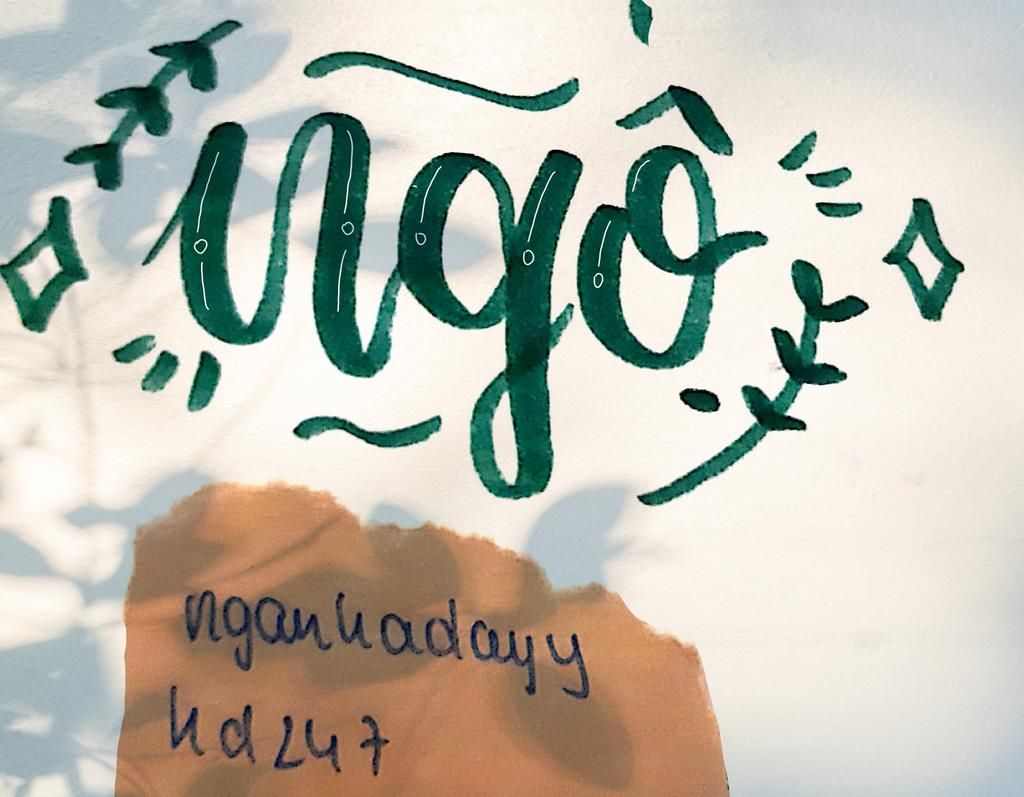 ngô
ngankadayy
kd247